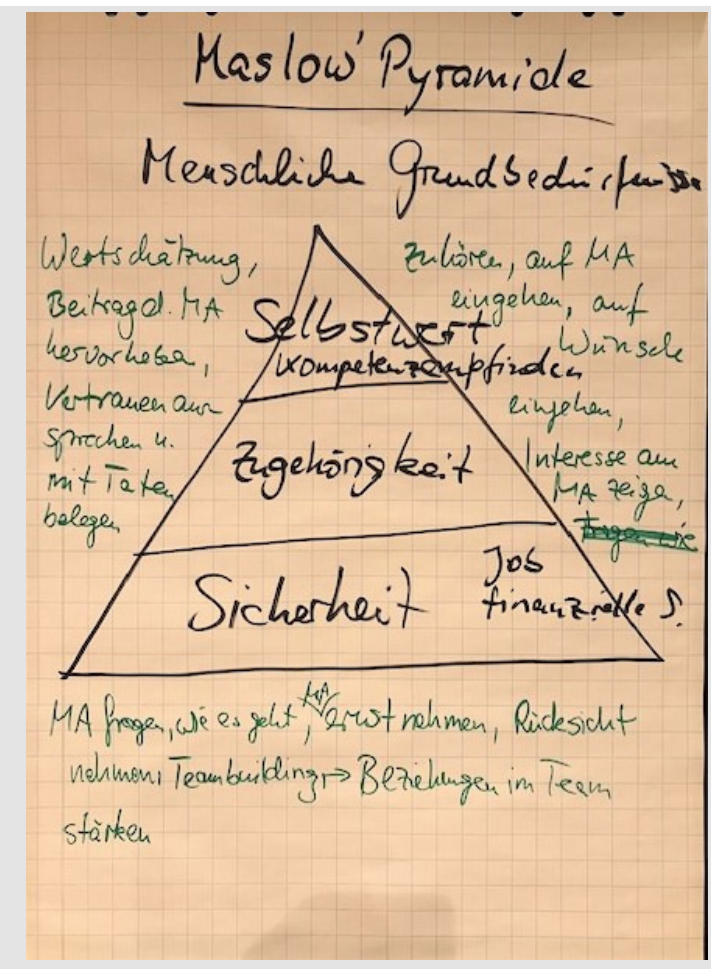 Maslow' Pyramide
Menschliche Grundbedürfnisse
Wertschätzung,
Beitrag d. MA
hervorheben,
Vertrauen aus
sprechen u.
mit Taten
belegen
Zuhören, auf MA
eingehen, auf
Wünsche
eingehen,
Interesse am
MA zeigen,
Selbstwert
Kompetenzempfinden
Zugehörigkeit
Sicherheit
Job
finanzielle S.
MA fragen, wie es geht, MA ernst nehmen, Rücksicht
nehmen, Teambuilding, → Beziehungen im Team
stärken